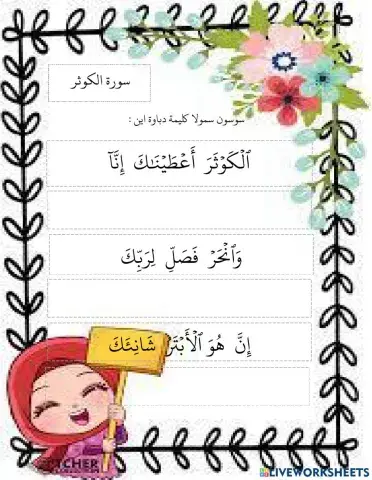 سورة الكوثر
سوسون سمولا كليمة دباوة اين :
ٱلْكَوْثَرَ أَعْطَيْنَـٰكَ إِنَّآ
وَٱنْحَرْ فَصَلِّ لِرَبِّكَ
إِنَّ هُوَ ٱلْأَبْتَرُ شَانِئَكَ
LIVEWORKSHEETS